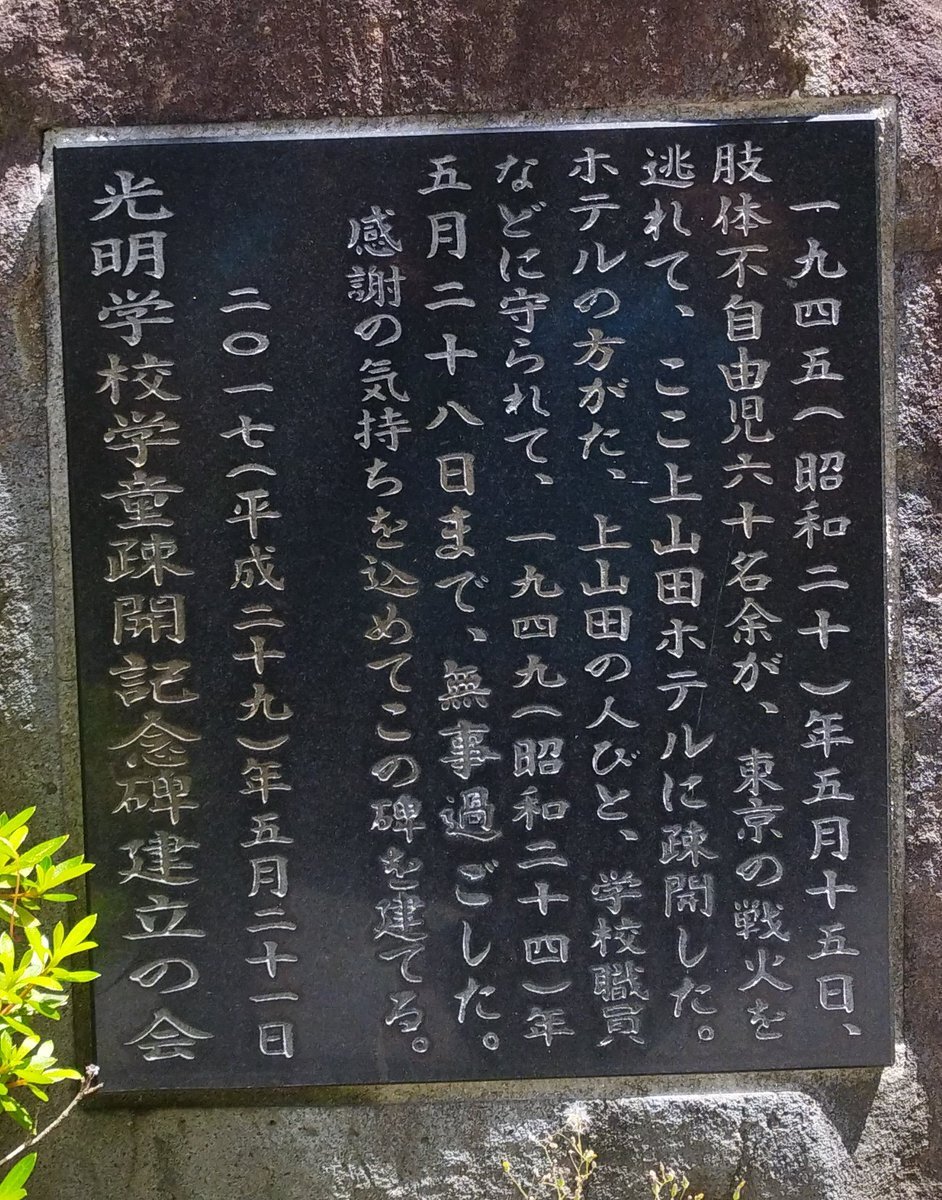 一九四五(昭和二十)年五月十五日、
肢体不自由児六十名余が、東京の戦火を
逃れて、ここ上山田ホテルに疎開した。
ホテルの方がた、上山田の人びと、学校職員
などに守られて、一九四九(昭和二十四)年
五月二十八日まで、無事過ごした。
感謝の気持ちを込めてこの碑を建てる。
二〇一七(平成二十九)年五月二十一日
光明学校学童疎開記念碑建立の会